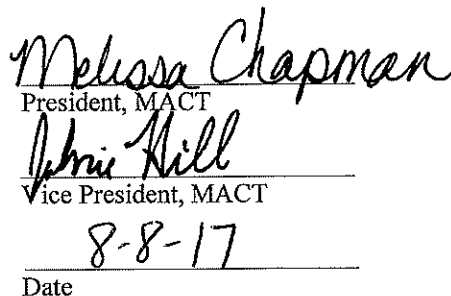 Melissa Chapman
President, MACT
Hill
Vice President, MACT
8-8-17
Date